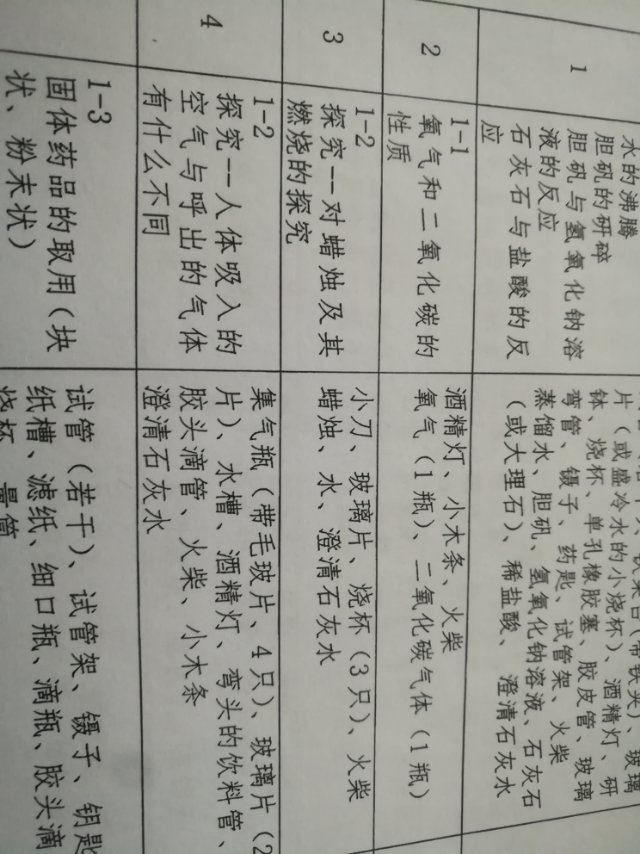 1
水的沸腾
胆矾的研碎
胆矾与氢氧化钠溶
液的反应
石灰石与盐酸的反
应
片（或盛冷水的小烧杯）、酒精灯、研
钵、烧杯、单孔橡胶塞、胶皮管、玻璃
弯管、镊子、药匙、试管架、火柴
蒸馏水、胆矾、氢氧化钠溶液、石灰石
（或大理石）、稀盐酸、澄清石灰水
2
1-1
氧气和二氧化碳的
性质
酒精灯、小木条、火柴
氧气（1瓶）、二氧化碳气体（1瓶）
3
1-2
探究--对蜡烛及其
燃烧的探究
小刀、玻璃片、烧杯（3只）、火柴
蜡烛、水、澄清石灰水
4
1-2
探究--人体吸入的
空气与呼出的气体
有什么不同
集气瓶（带毛玻片、4只）、玻璃片（2
片）、水槽、酒精灯、弯头的饮料管、
胶头滴管、火柴、小木条
澄清石灰水
1-3
固体药品的取用（块
状、粉末状）
试管（若干）、试管架、镊子、钥匙
纸槽、滤纸、细口瓶、滴瓶、胶头滴
烧杯、量筒